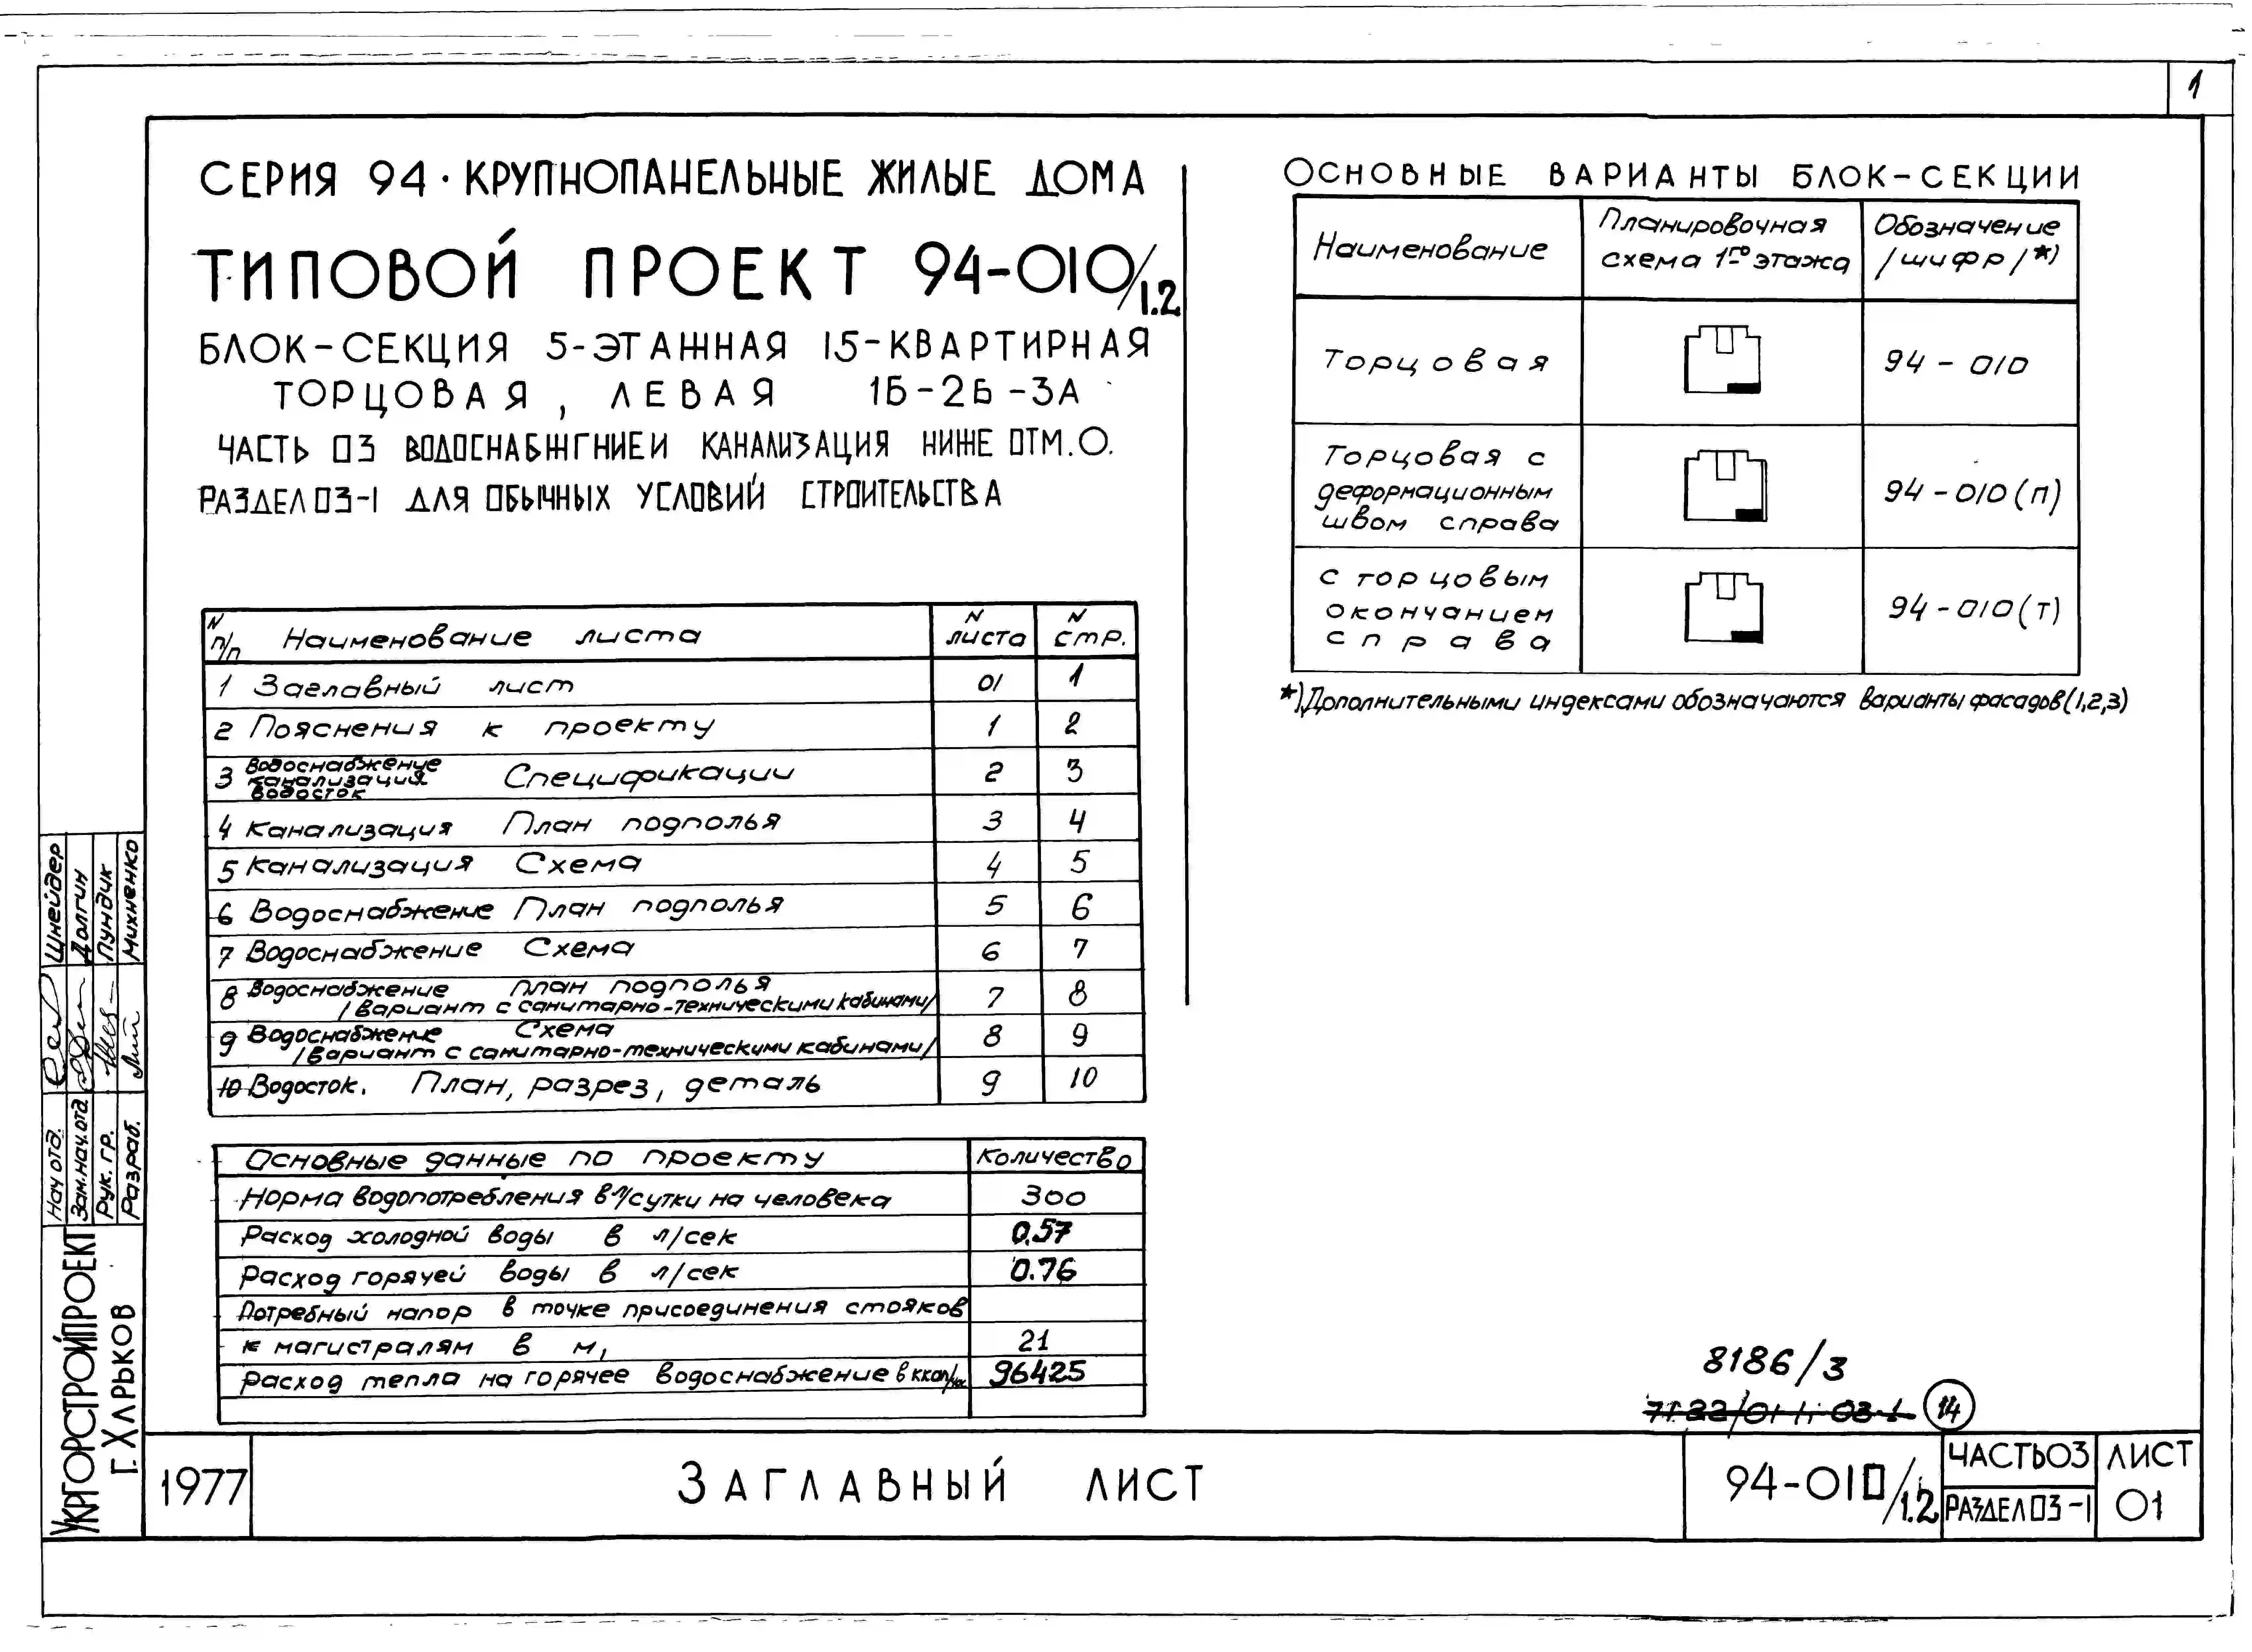 1
СЕРИЯ 94 · КРУПНОПАНЕЛЬНЫЕ ЖИЛЫЕ ДОМА
ТИПОВОЙ ПРОЕКТ 94-010/1.2
БЛОК-СЕКЦИЯ 5-ЭТАЖНАЯ 15-КВАРТИРНАЯ
ТОРЦОВАЯ, ЛЕВАЯ 1Б-2Б-3А
ЧАСТЬ 03 ВОДОСНАБЖГНИЕИ КАНАЛИЗАЦИЯ НИЖЕ ОТМ.О.
РАЗДЕЛ 03-1 ДЛЯ ОБЫЧНЫХ УСЛОВИЙ СТРОИТЕЛЬСТВА
N п/п Наименование листа N листа N стр.
1 Заглавный лист 01 1
2 Пояснения к проекту 1 2
3 Водоснабжение канализация водосток Спецификации 2 3
4 Канализация План подполья 3 4
5 Канализация Схема 4 5
6 Водоснабжение План подполья 5 6
7 Водоснабжение Схема 6 7
8 Водоснабжение план подполья 7 8
/вариант с санитарно-техническими кабинами/
9 Водоснабжение Схема 8 9
/вариант с санитарно-техническими кабинами/
10 Водосток. План, разрез, деталь 9 10
Основные данные по проекту Количество
Норма водопотребления в л/сутки на человека 300
Расход холодной воды в л/сек 0.57
Расход горячей воды в л/сек 0.76
Потребный напор в точке присоединения стояков
к магистралям в м, 21
Расход тепла на горячее водоснабжение в ккал/час 96425
ОСНОВНЫЕ ВАРИАНТЫ БЛОК-СЕКЦИИ
Наименование Планировочная схема 1го этажа Обозначение /шифр/*)
Торцовая 94-010
Торцовая с деформационным швом справа 94-010(п)
С торцовым окончанием справа 94-010(т)
*) Дополнительными индексами обозначаются варианты фасадов (1,2,3)
8186/3
14
Нач отд. Шнейдер
Зам.нач.отд Долгин
Рук. гр. Пундик
Разраб. Михненко
УКРГОРСТРОЙПРОЕКТ
Г. ХАРЬКОВ
1977
ЗАГЛАВНЫЙ ЛИСТ
94-010/1.2
ЧАСТЬ03
РАЗДЕЛ03-1
ЛИСТ
01